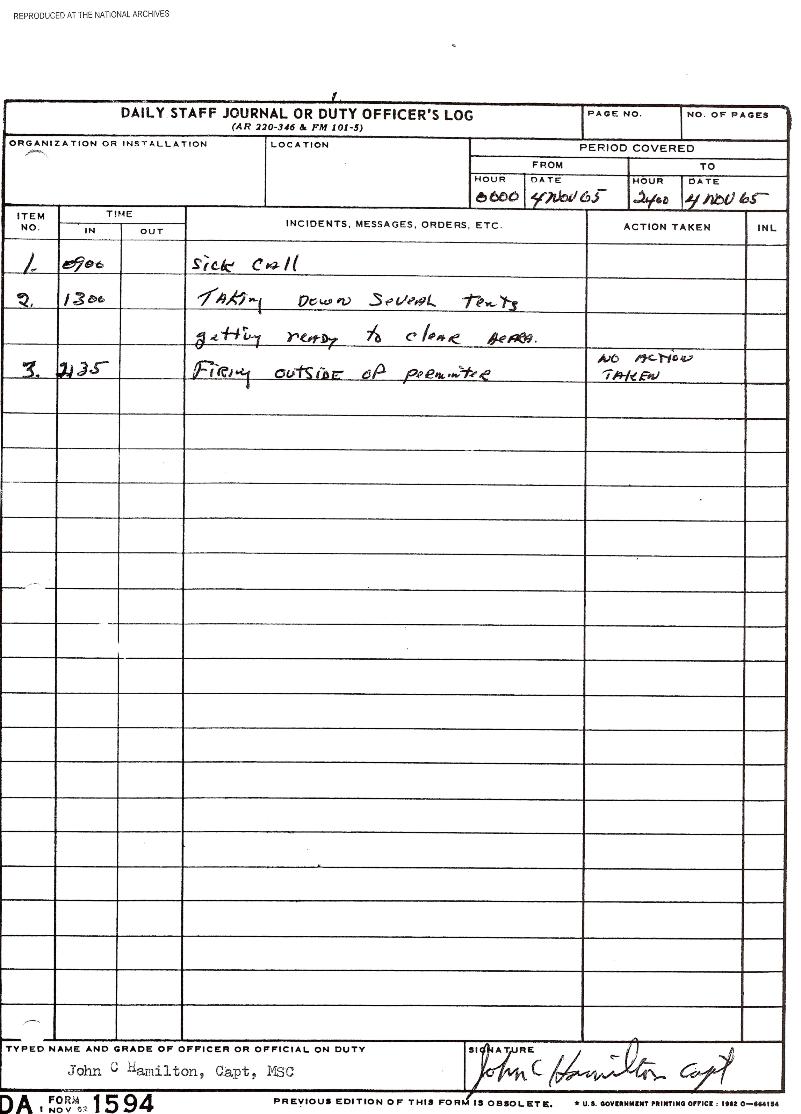 REPRODUCED AT THE NATIONAL ARCHIVES
1
DAILY STAFF JOURNAL OR DUTY OFFICER'S LOG
(AR 220-346 & FM 101-5)
PAGE NO.
NO. OF PAGES
ORGANIZATION OR INSTALLATION
LOCATION
PERIOD COVERED
FROM
TO
HOUR
DATE
HOUR
DATE
0000
4 NOV 65
2400
4 NOV 65
ITEM NO.
TIME
IN
OUT
INCIDENTS, MESSAGES, ORDERS, ETC.
ACTION TAKEN
INL
1. 0900 Sick Call
2. 1300 Taking Down Several Tents
getting ready to clear
3. 2135 Firing outside of NO ACTION
TAKEN
TYPED NAME AND GRADE OF OFFICER OR OFFICIAL ON DUTY
John C Hamilton, Capt, MSC
SIGNATURE
John C Hamilton Capt
DA FORM 1 NOV 62 1594
PREVIOUS EDITION OF THIS FORM IS OBSOLETE.
* U.S. GOVERNMENT PRINTING OFFICE : 1962 O—664184